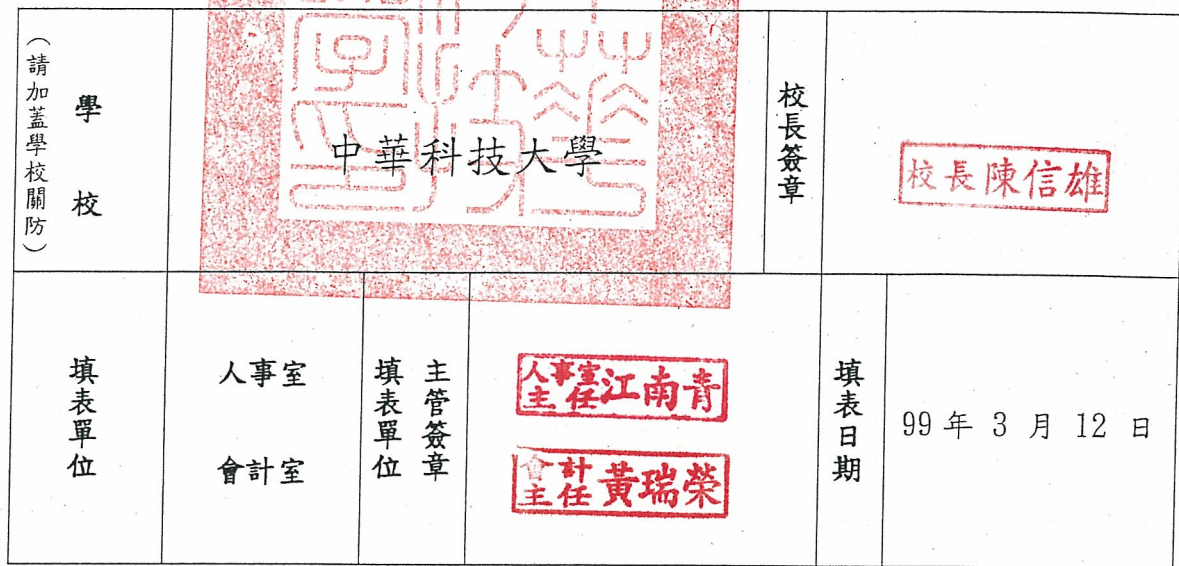 學校
（請加蓋學校關防）
中華科技大學
校長簽章
校長陳信雄
填表單位
人事室
會計室
填表單位
主管簽章
人事室主任江南青
會計主任黃瑞榮
填表日期
99 年 3 月 12 日